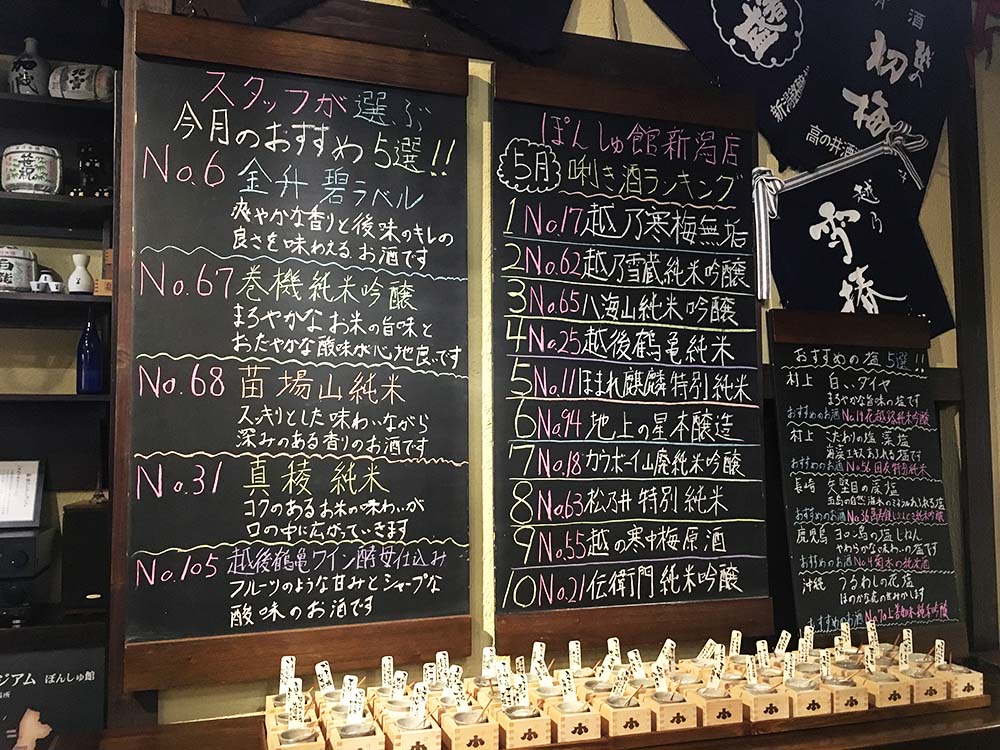 スタッフが選ぶ
今月のおすすめ5選!!
No.6 金升 碧ラベル
爽やかな香りと後味のキレの
良さを味わえるお酒です
No.67 巻機純米吟醸
まろやかなお米の旨味と
おだやかな酸味が心地良いです
No.68 苗場山純米
スッキリとした味わいながら
深みのある香りのお酒です
No.31 真稜 純米
コクのあるお米の味わいが
口の中に広がっていきます
No.105 越後鶴亀ワイン酵母仕込み
フルーツのような甘みとシャープな
酸味のお酒です
ぽんしゅ館新潟店
5月 唎き酒ランキング
1 No.17 越乃寒梅無垢
2 No.62 越乃雪蔵純米吟醸
3 No.65 八海山純米吟醸
4 No.25 越後鶴亀純米
5 No.11 ほまれ麒麟特別純米
6 No.94 地上の星本醸造
7 No.18 カウボーイ山廃純米吟醸
8 No.63 松乃井特別純米
9 No.55 越の寒中梅原酒
10 No.21 伝衛門純米吟醸
おすすめの塩5選!!
村上 白いダイヤ
まろやかな旨味の塩です
おすすめのお酒 No.19 花越路純米吟醸
村上 こだわりの塩 藻塩
海藻エキスあふれる塩です
おすすめのお酒 No.56
特別純米
長崎 矢堅目の藻塩
おすすめのお酒 No.36
鹿児島 ヨロン島の塩 じねん
やわらかな味わいの塩です
おすすめのお酒 No.4 菊水の純米酒
沖縄 うるわしの花塩
おすすめのお酒 No.70
純米吟醸
酒
越の
初梅
高の井酒
越乃
雪椿
ジアム ぽんしゅ館